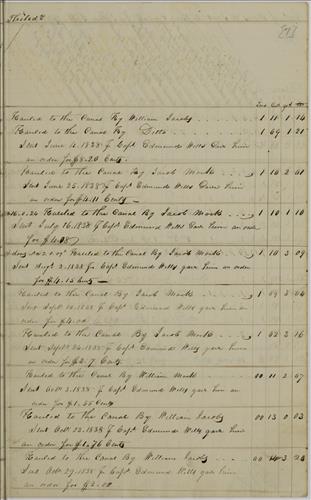 Hauled to the Canal By William Jacobs 1 11 1 14
Hauled to the Canal By Ditto 1 69 1 21
Sent June 4. 1838 Capt Edmund Wills Gave him
an order for $8.20 Cents.
Hauled to the Canal By Jacob 1 10 2 01
Sent June 25. 1838 Capt Edmund Wills Gave him
an order for $4.11 Cents
Hauled to the Canal By Jacob 1 10 1 10
Sent July 16. 1838 Capt Edmund Wills Gave him an order
for $4.08
Hauled to the Canal By Jacob 1 10 3 09
Sent Augt 2. 1838 Capt Edmund Wills gave him an order
for $4.15 Cents
Hauled to the Canal By Jacob 1
Sent Sept 1838 Capt Edmund Wills gave him an
order for
Hauled to the Canal By Jacob 1 3 16
Sent Sept 24. 1838 Capt Edmund Wills gave him
an order for Cents
Hauled to the Canal By William 00 11 2 07
Sent Octr 3. 1838 Capt Edmund Wills gave him an
order for $1.55 Cents
Hauled to the Canal By William Jacobs 00 13 0 03
Sent Octr 22. 1838 Capt Edmund Wills gave him
an order for $1.76 Cents
Hauled to the Canal By William Jacobs 00 3 23
Sent Octr 29. 1838 Capt Edmund Wills gave him
an order for $2.00